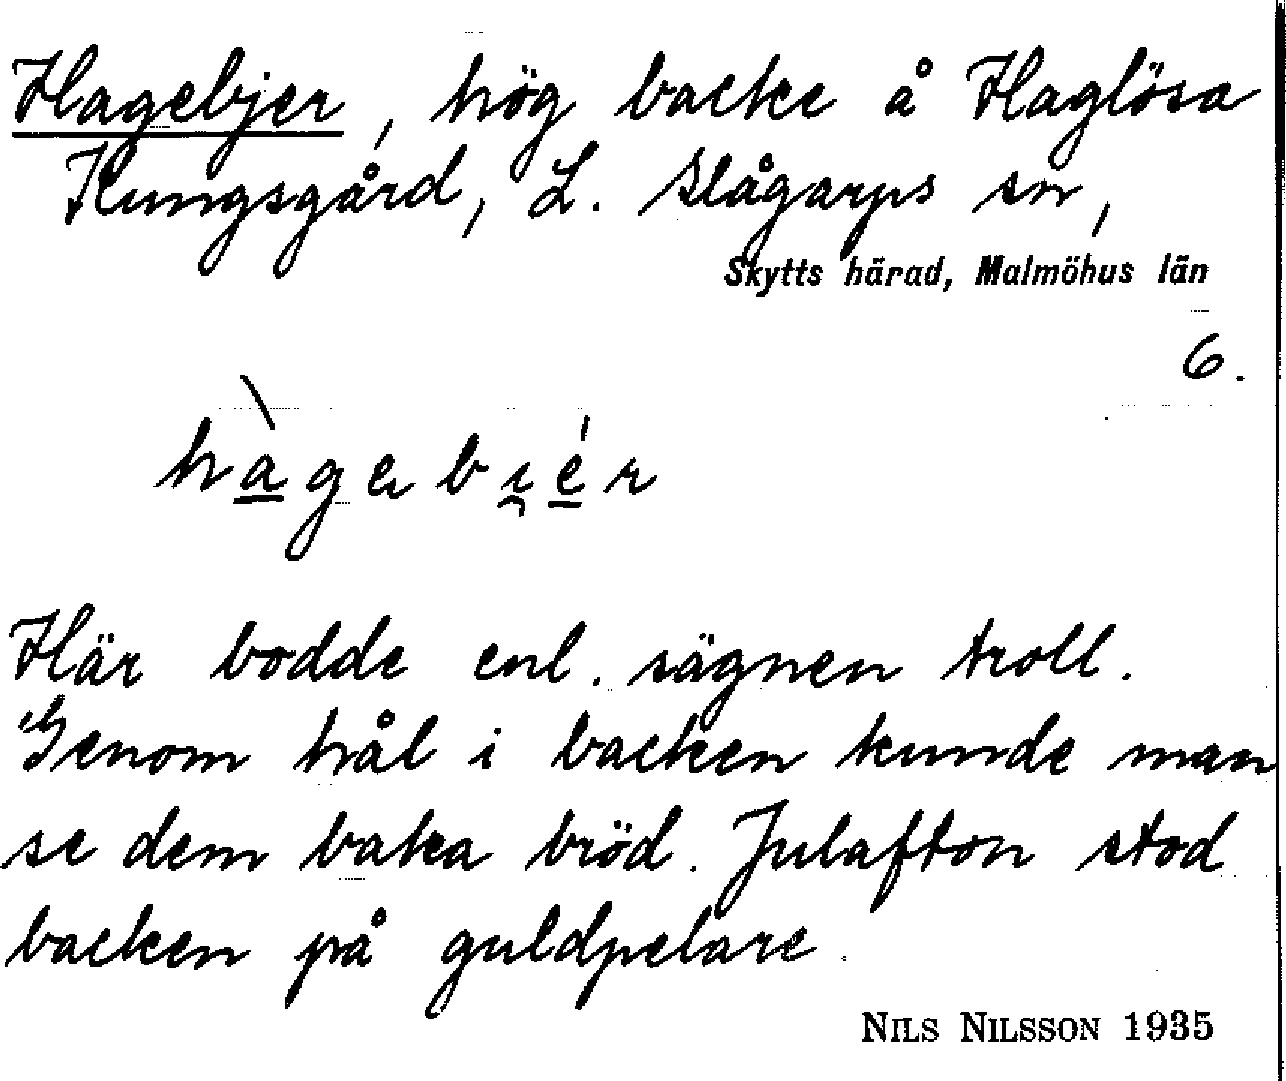 Hagebjer, hög backe å Haglösa
Kungsgård, L. Slågarps sn,
Skytts härad, Malmöhus län
6.
Här bodde enl. sägnen troll.
Genom hål i backen kunde man
se dem baka bröd. Julafton stod
backen på guldpelare.
NILS NILSSON 1935